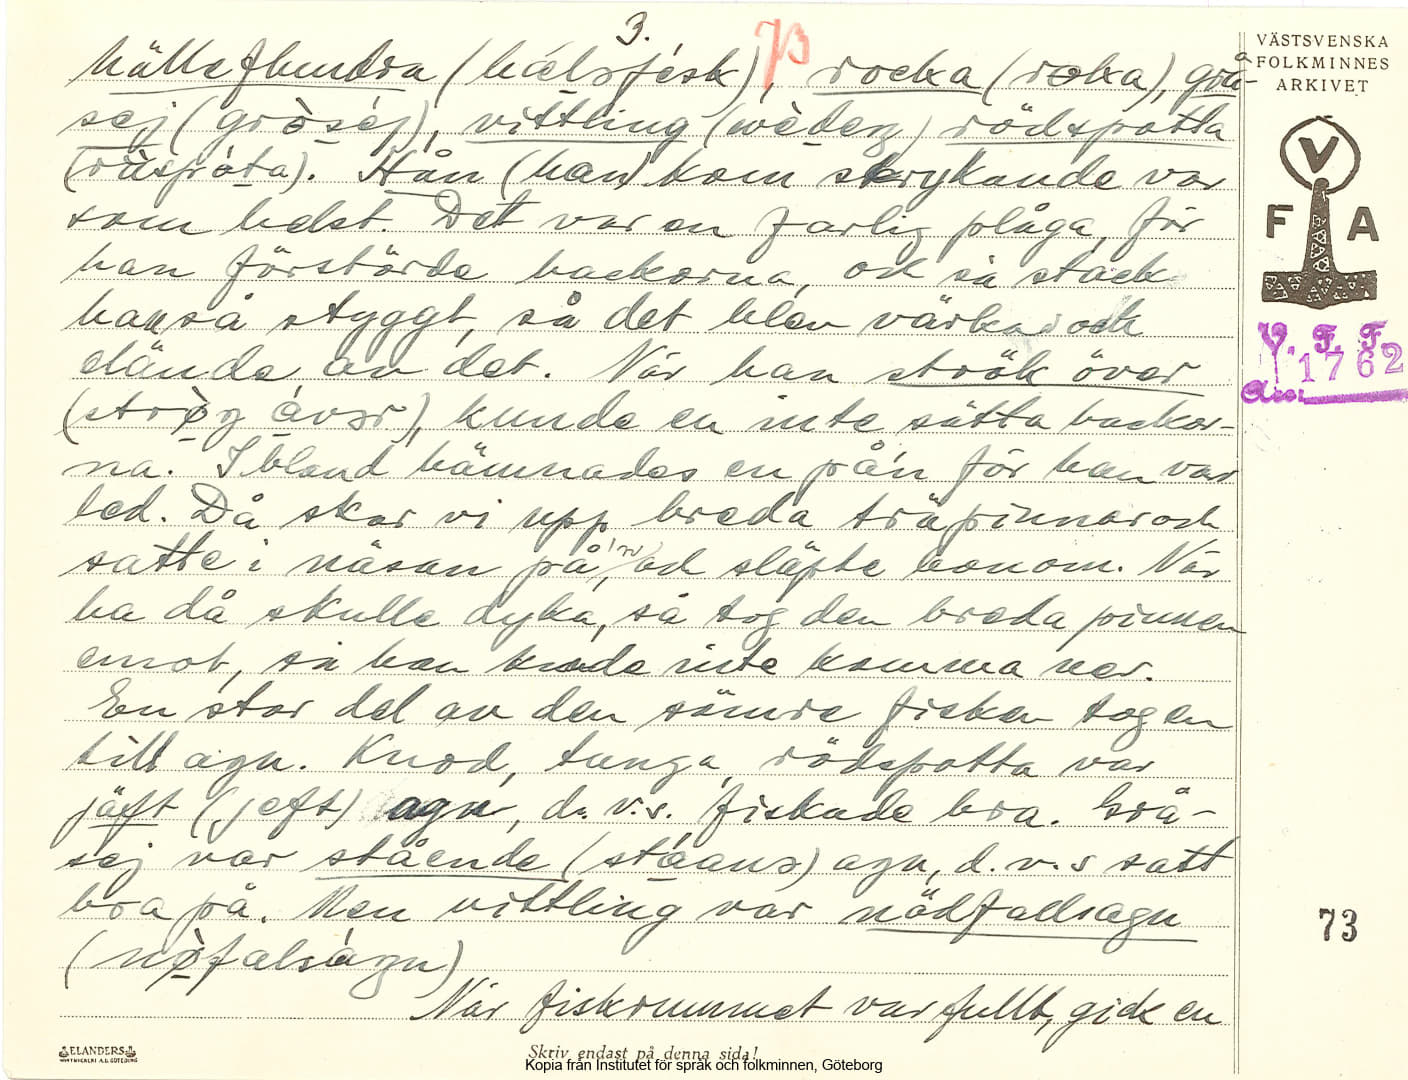 3.
73
hällefhundra (hǽlsfésk), rocka (roka), grå-
sej (gròséj), vittling (wèdeng) rödspotta
(rùspóta). Hån (han) kom strykande var
som helst. Det var en farlig plåga, för
han förstörde backorna, ock så stack
han så styggt, så det blev värkar ock
elände av det. När han strök över
(strøg ávər), kunde en inte sätta backor-
na. Ibland hämnades en på'n för han var
led. Då skar vi upp breda träpinnar och
satte i näsan på'n, ock släpte honom. När
ha då skulle dyka, så tog den breda pinnen
emot, så han kunde inte komma ner.
En stor del av den sämre fisken tog en
till agn. Knod, tunga, rödspotta var
jäft (jeft) agn, d.v.s. fiskade bra. Grå-
sej var stående (stáans) agn, d.v.s satt
bra på. Men vittling var nödfallsagn
(nøfalságn)
När fiskrummet var fullt, gick en
VÄSTSVENSKA
FOLKMINNES
ARKIVET
V
F A
V. F. F.
1762
73
ELANDERS
Skriv endast på denna sida!
Kopia från Institutet för språk och folkminnen, Göteborg